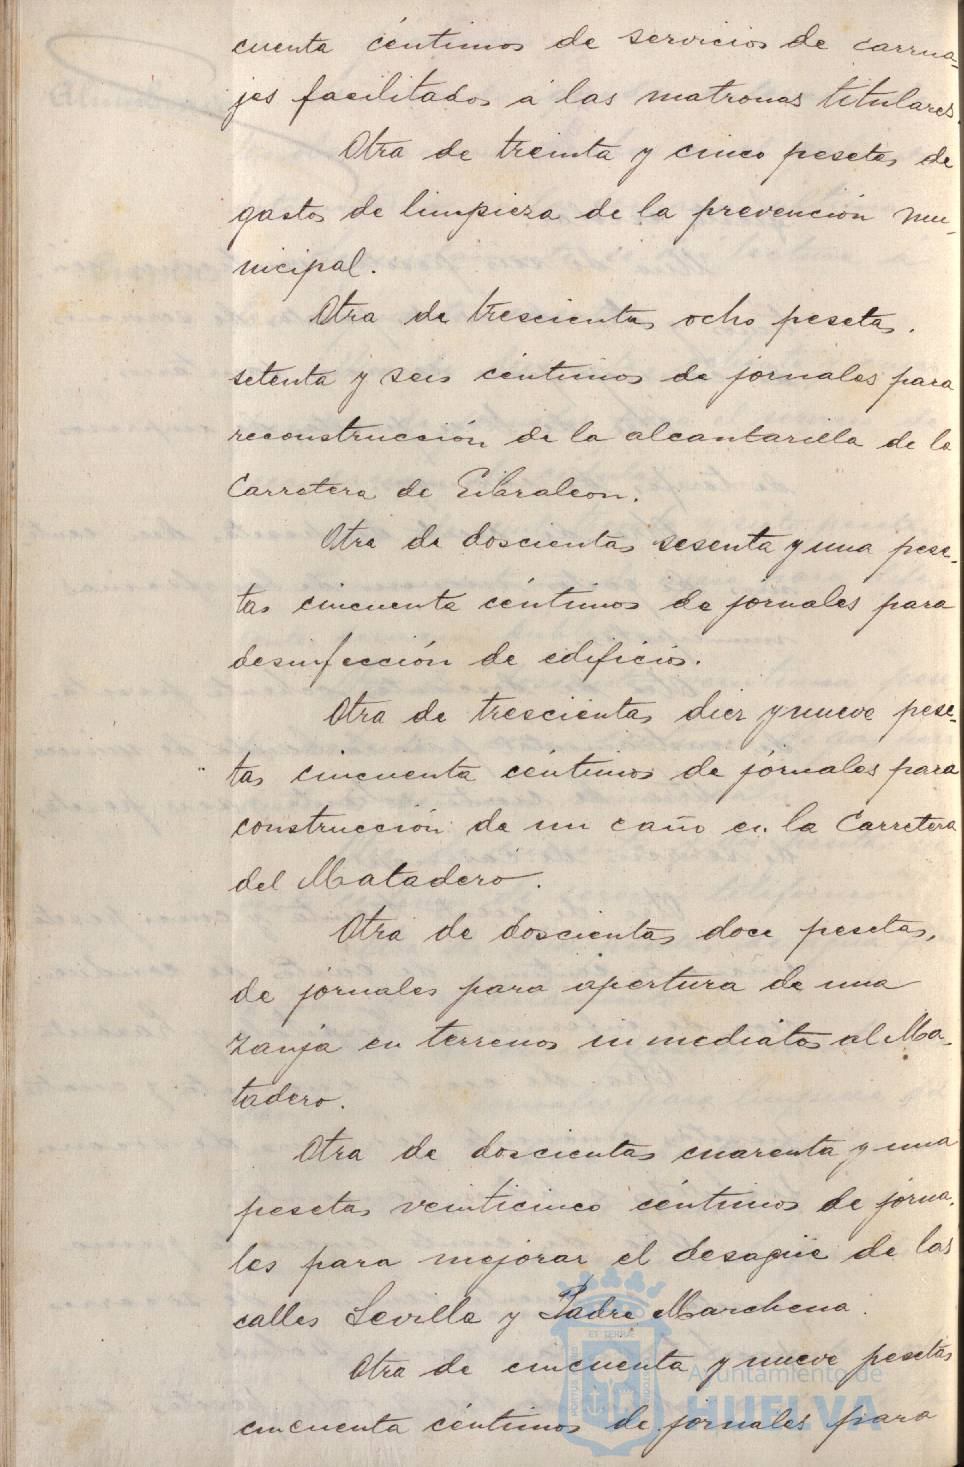 cuenta céntimos de servicios de carrua-
jes facilitados a las matronas titulares.
Otra de treinta y cinco pesetas de
gastos de limpieza de la prevención mu-
nicipal.
Otra de trescientas ocho pesetas.
setenta y seis céntimos de jornales para
reconstrucción de la alcantarilla de la
Carretera de Gibraleon.
Otra de doscientas sesenta y una pese-
tas cincuenta céntimos de jornales para
desinfección de edificios.
Otra de trescientas diez y nueve pese-
tas cincuenta céntimos de jornales para
construcción de un caño en la Carretera
del Matadero.
Otra de doscientas doce pesetas,
de jornales para apertura de una
zanja en terrenos inmediatos al Ma-
tadero.
Otra de doscientas cuarenta y una
pesetas veinticinco céntimos de jorna-
les para mejorar el desagüe de las
calles Sevilla y Padre Marchena.
Otra de cincuenta y nueve pesetas
cincuenta céntimos de jornales para
Ayuntamiento de
HUELVA